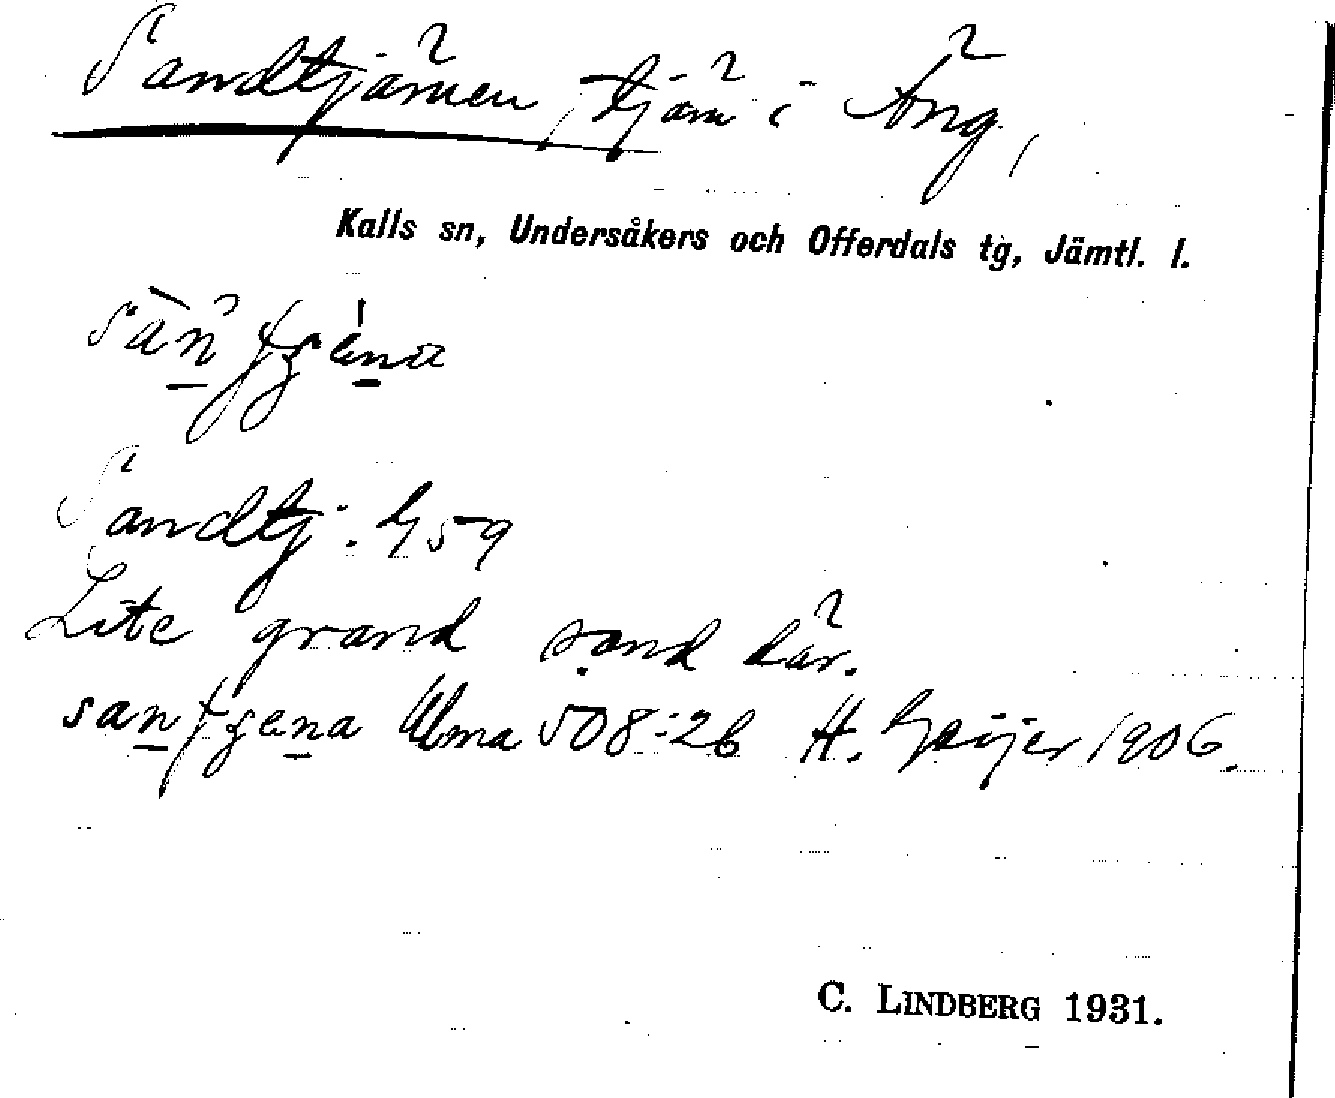 Sandtjärnen, tjärn i Äng,
Kalls sn, Undersåkers och Offerdals tg, Jämtl. l.
Sandtj:
Lite grand sand där.
Ulma 508:26 H. Geijer 1906.
C. LINDBERG 1931.